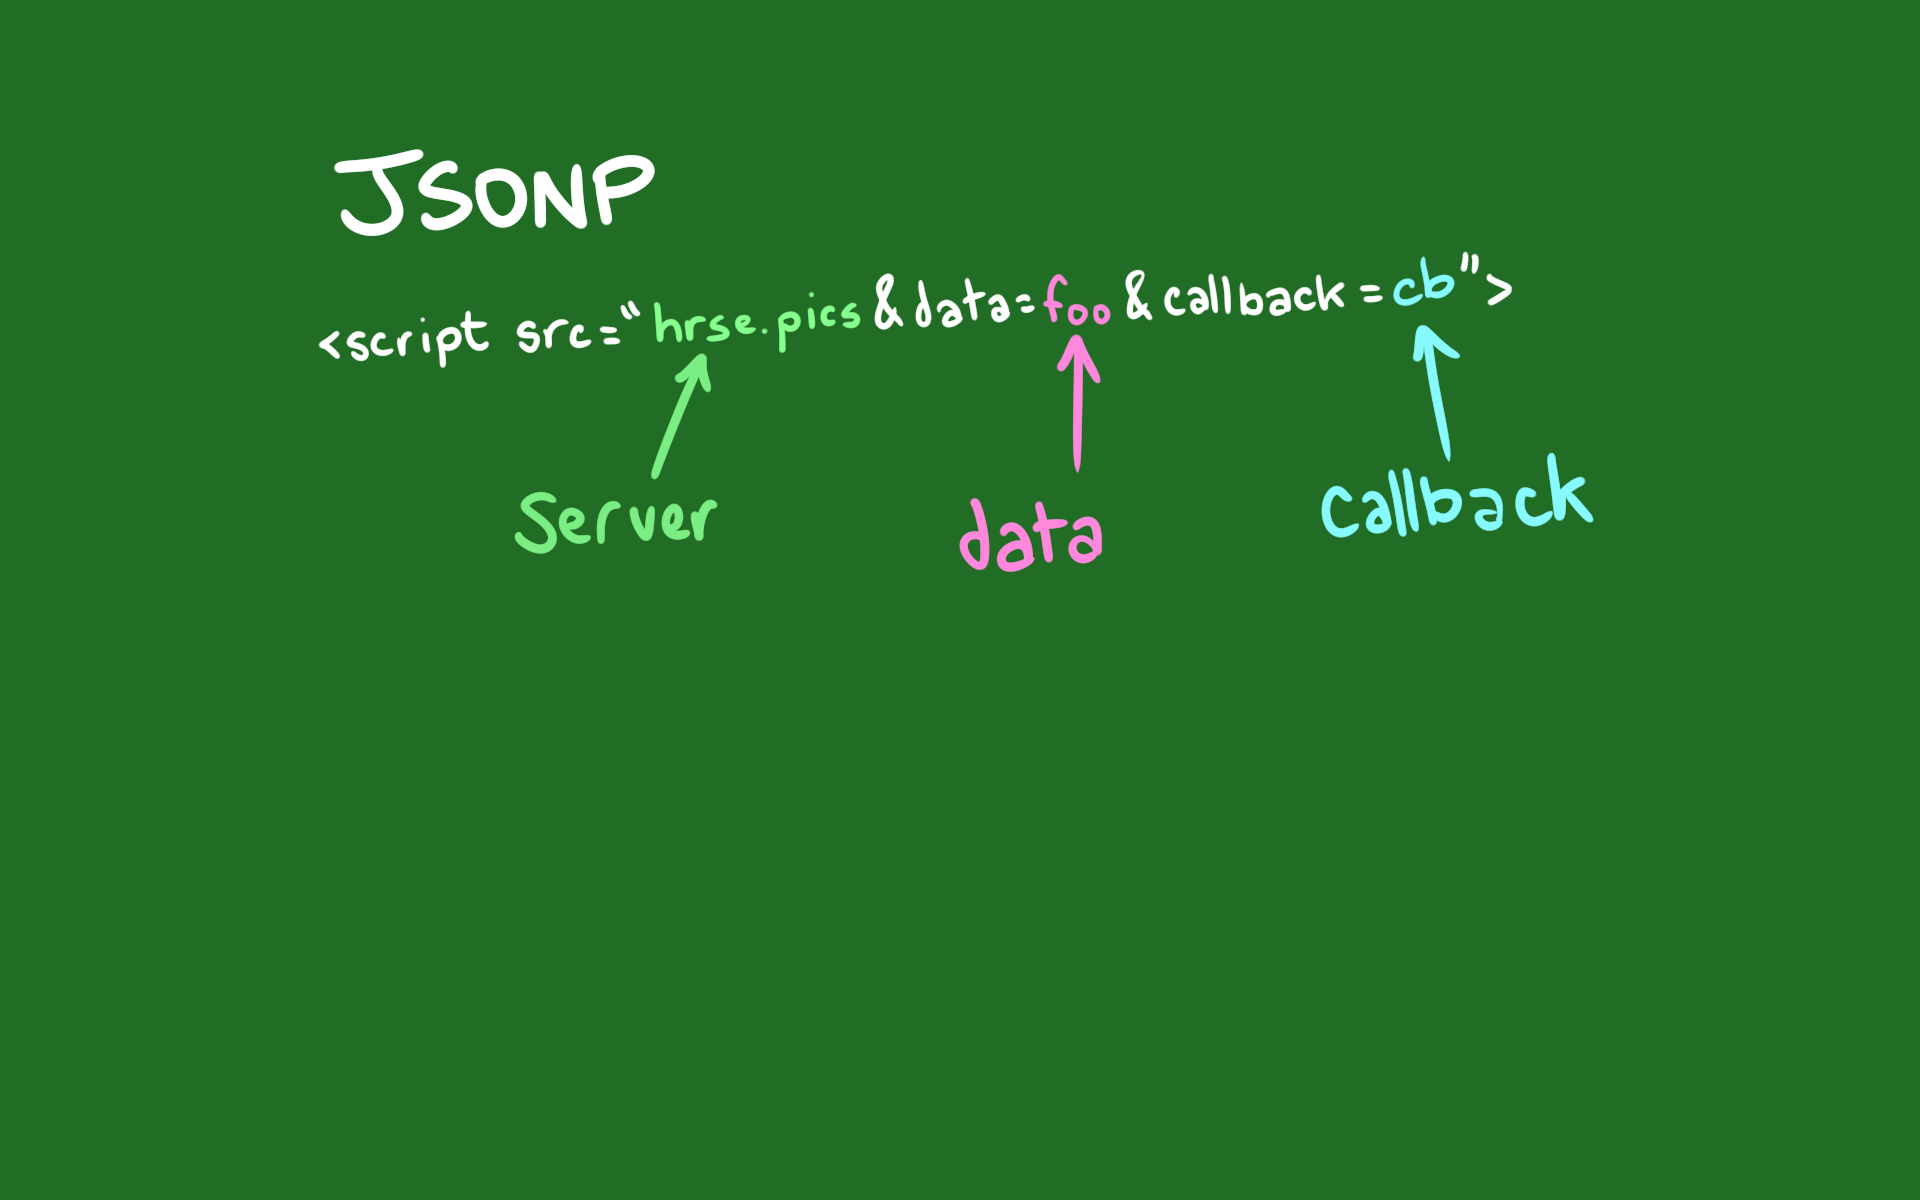 JSONP
<script src="hrse.pics&data=foo&callback=cb">
Server data callback